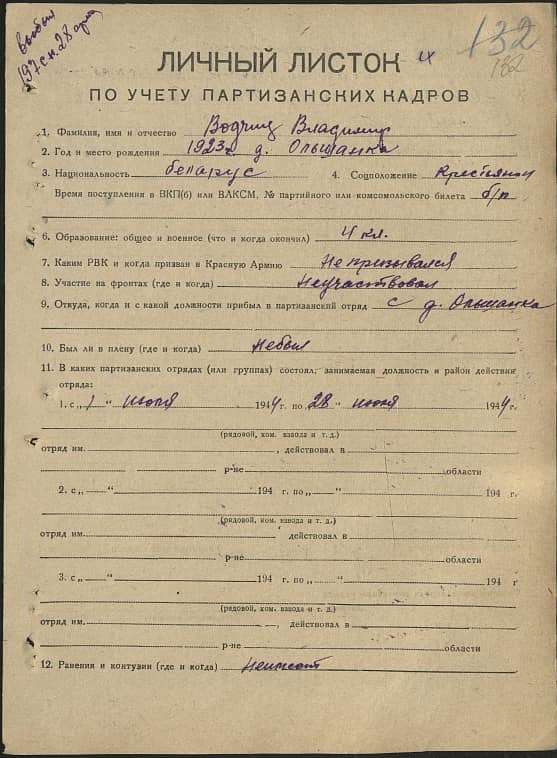 выбыл
132
132
ЛИЧНЫЙ ЛИСТОК
ПО УЧЕТУ ПАРТИЗАНСКИХ КАДРОВ
1. Фамилия, имя и отчество Владимир
2. Год и место рождения 1923г. д. Ольшанка
3. Национальность беларус 4. Соцположение Крестьянин
Время поступления в ВКП(б) или ВЛКСМ, № партийного или комсомольского билета б/п
6. Образование: общее и военное (что и когда окончил) 4 кл.
7. Каким РВК и когда призван в Красную Армию Непризывался
8. Участие на фронтах (где и когда) Неучаствовал
9. Откуда, когда и с какой должности прибыл в партизанский отряд с д. Ольшанка
10. Был ли в плену (где и когда) Небыл
11. В каких партизанских отрядах (или группах) состоял, занимаемая должность и район действия
отряда:
1. с „ 1 “ июля 1944 г. по „ 28 “ июля 1944 г.
(рядовой, ком. взвода и т. д.)
отряд им. , действовал в
р-не области
2. с „ “ 194 г. по „ “ 194 г.
(рядовой, ком. взвода и т. д.)
отряд им. действовал в
р-не области
3. с „ “ 194 г. по „ “ 194 г
(рядовой, ком. взвода и т. д.)
отряд им. , действовал в
р-не области
12. Ранения и контузии (где и когда) Неимеет